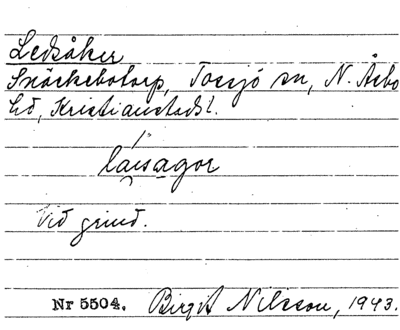 Ledsåker
Snäckebotorp, Tossjö sn, N. Åsbo
hd, Kristianstads l.
láisagor
Vid grind.
Nr 5504. Birgit Nilsson, 1943.